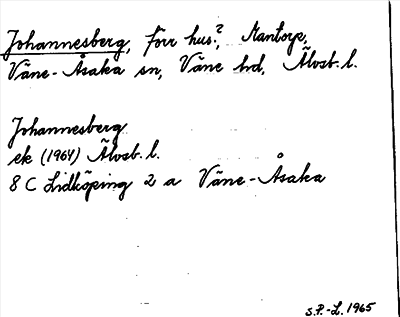 Johannesberg, förr hus?, Mantorp,
Väne-Åsaka sn, Väne hd, Älvsb. l.
Johannesberg
ek (1964) Älvsb. l.
8 C Lidköping 2 a Väne-Åsaka
S.P.-L. 1965